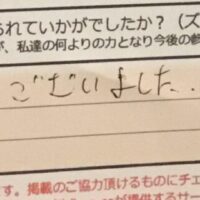 られていかがでしたか？（ズ
が、私達の何よりの力となり今後の参
ございました...
す。掲載のご協力頂けるものにチェ
が提供するサー